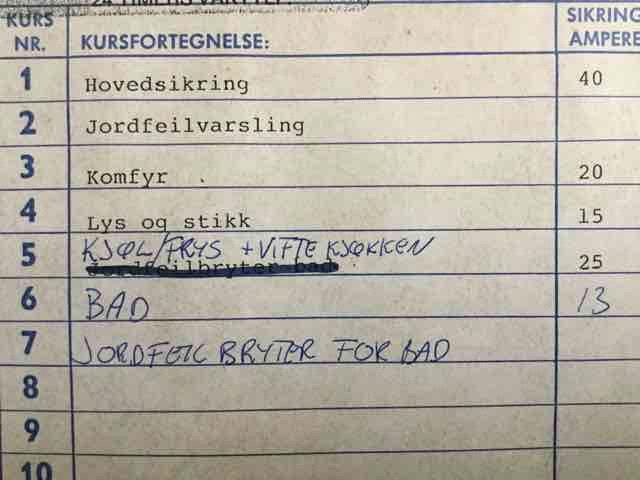 KURS NR. KURSFORTEGNELSE: SIKRING AMPERE
1 Hovedsikring 40
2 Jordfeilvarsling
3 Komfyr 20
4 Lys og stikk 15
5 KJØL/FRYS + VIFTE KJØKKEN
Jordfeilbryter bad 25
6 BAD 13
7 JORDFEIL BRYTER FOR BAD
8
9
10